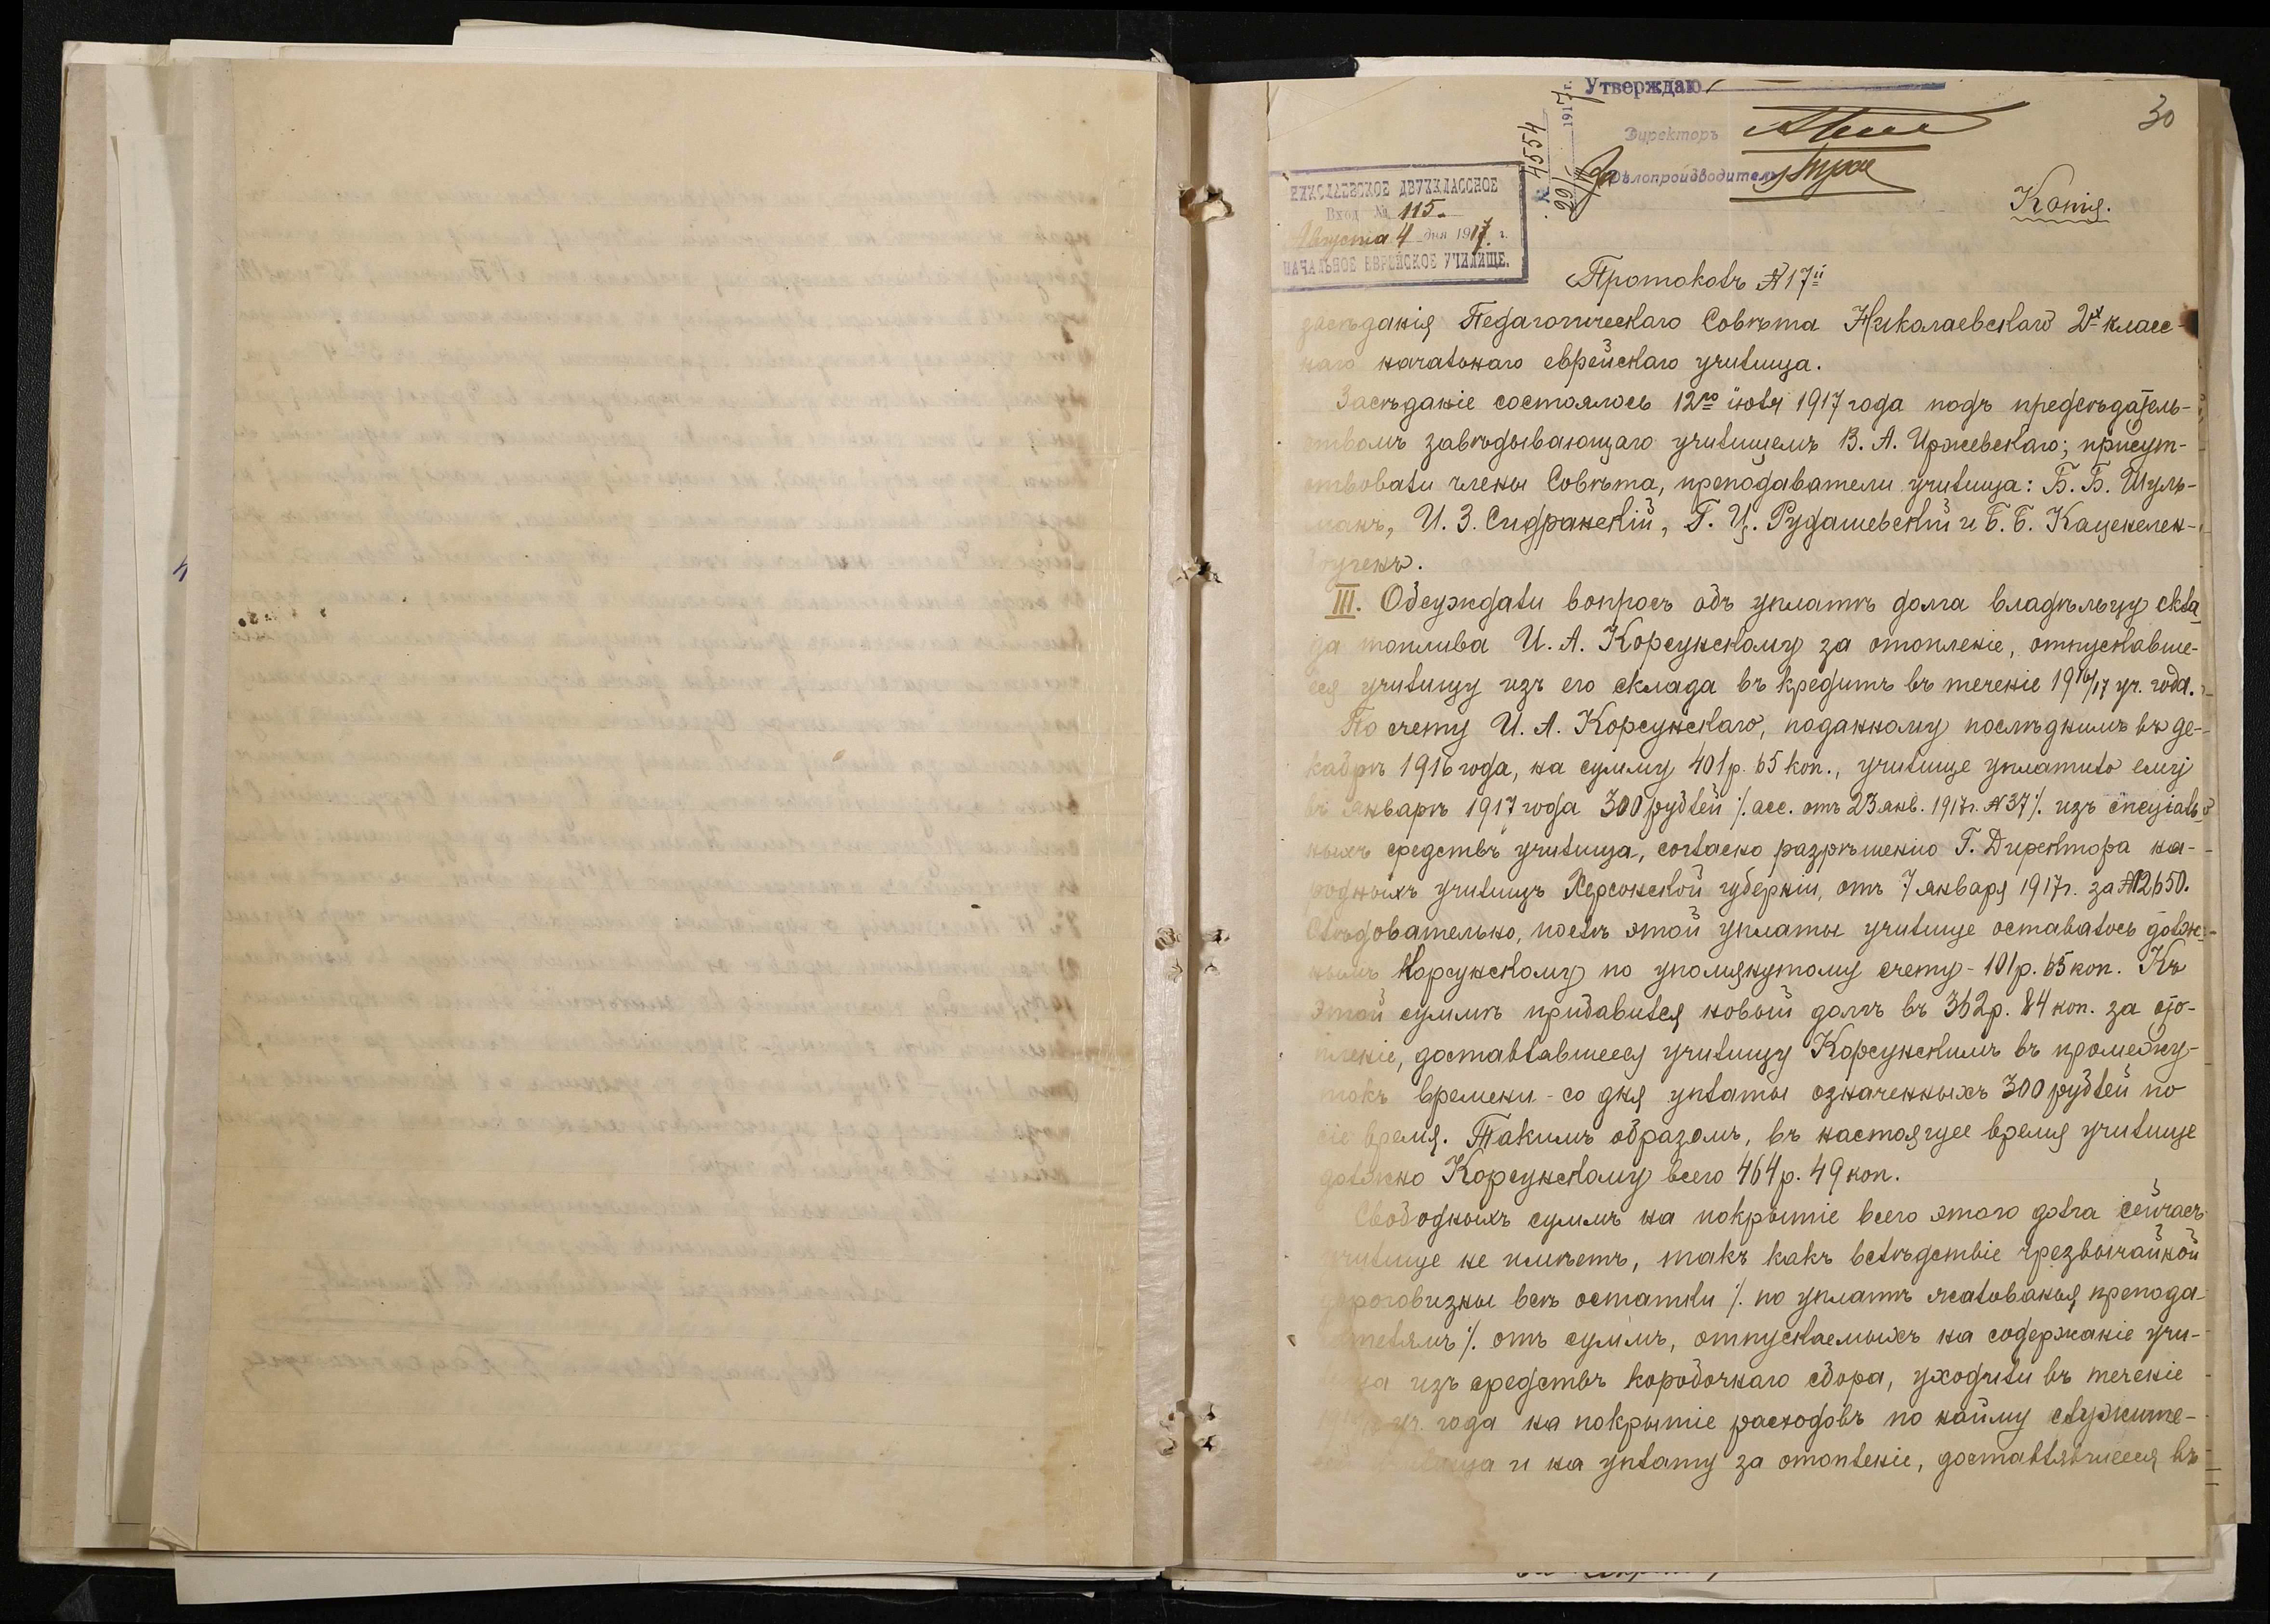 Утверждаю
30
Директоръ
Дѣлопроизводитель
№ 4554
29/ 1917 г.
НИКОЛАЕВСКОЕ ДВУХКЛАССНОЕ
Вход. № 115.
Августа 4 дня 1917 г.
НАЧАЛЬНОЕ ЕВРЕЙСКОЕ УЧИЛИЩЕ.
Копія.
Протоколъ № 17й
засѣданія Педагогическаго Совѣта Николаевскаго 2х класс-
наго начальнаго еврейскаго училища.
Засѣданіе состоялось 12го іюля 1917 года подъ предсѣдатель-
ствомъ завѣдывающаго училищемъ В. А. Иржевскаго; присут-
ствовали члены Совѣта, преподаватели училища: Б. Б. Шуль-
манъ, И. З. Сидранскій, Г. Ц. Рудашевскій и Б. Б. Каценелен-
богенъ.
III. Обсуждали вопросъ объ уплатѣ долга владѣльцу скла
да топлива И. А. Корсунскому за отопленіе, отпускавше-
еся училищу изъ его склада въ кредитъ въ теченіе 1916/17 уч. года.
По счету И. А. Корсунскаго, поданному послѣднимъ въ де-
кабрѣ 1916 года, на сумму 401 р. 65 коп., училище уплатило ему
въ январѣ 1917 года 300 рублей /. асс. отъ 23 янв. 1917 г. № 37 /. изъ спеціаль-
ныхъ средствъ училища, согласно разрѣшенію Г. Директора на-
родныхъ училищъ Херсонской губерніи, отъ 7 января 1917 г. за № 12650.
Слѣдовательно, послѣ этой уплаты училище оставалось долж-
нымъ Корсунскому по упомянутому счету - 101 р. 65 коп. Къ
этой суммѣ прибавился новый долгъ въ 362 р. 84 коп. за ото-
пленіе, доставлявшееся училищу Корсунскимъ въ промежу-
токъ времени - со дня уплаты означенныхъ 300 рублей по
сіе время. Такимъ образомъ, въ настоящее время училище
должно Корсунскому всего 464 р. 49 коп.
Свободныхъ суммъ на покрытіе всего этого долга сейчасъ
училище не имѣетъ, такъ какъ вслѣдствіе чрезвычайной
дороговизны всѣ остатки /. по уплатѣ жалованья препода-
вателямъ /. отъ суммъ, отпускаемыхъ на содержаніе учи-
лища изъ средствъ коробочнаго сбора, уходили въ теченіе
уч. года на покрытіе расходовъ по найму служите-
лей училища и на уплату за отопленіе, доставлявшееся въ